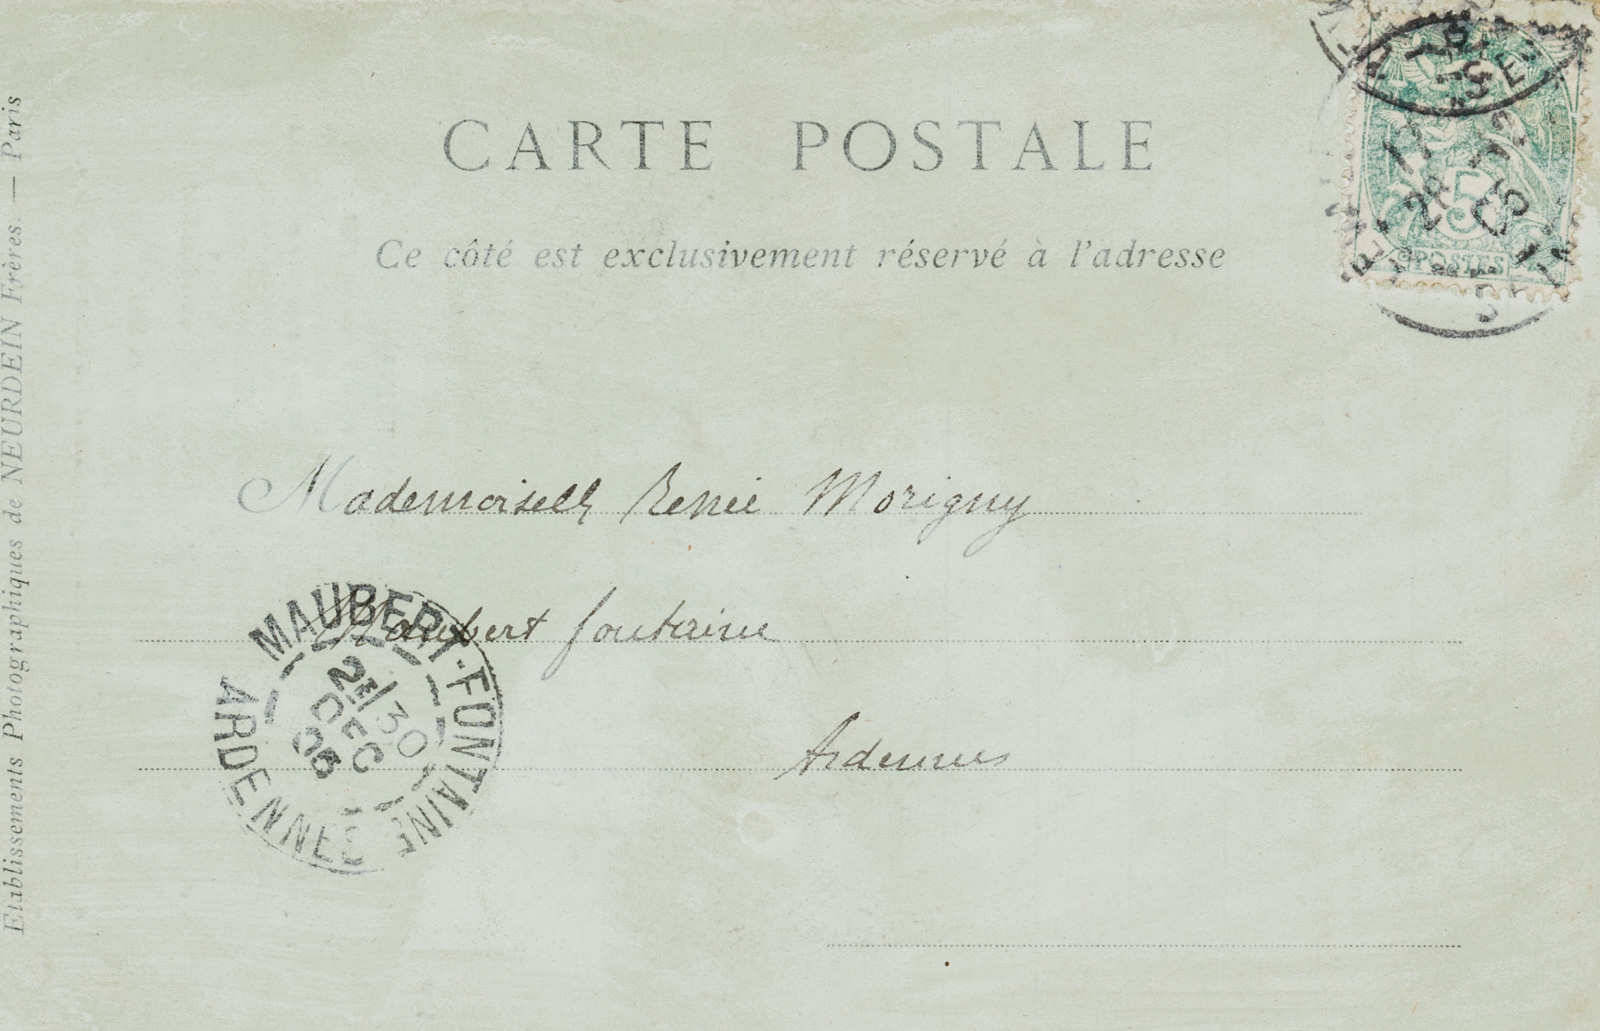 CARTE POSTALE
Ce côté est exclusivement réservé à l'adresse
5
POSTES
Mademoiselle Renée Morigny
Maubert fontaine
Ardennes
MAUBERT-FONTAINE
2E/30
DEC
05
ARDENNES
Etablissements Photographiques de NEURDEIN Frères. — Paris